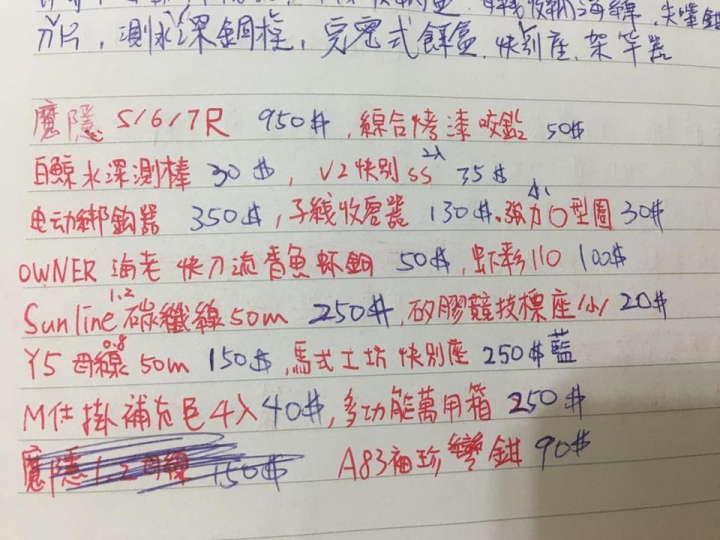 刀片,測水深銅栓,完電式餌盒,快別座,架竿器
魔隱 5/6/7尺 950$,綜合烤漆咬鉛 50$
白鯨水深測棒 30$,V2快別SS 2入 35$
电动綁鉤器 350$,子綫收容器 130$.強力O型圈 小 30$
OWNER 海老 快刀流青魚虾鉤 50$,虾彩110 100$
Sunline 1.2 碳纖線50m 250$,矽膠競技標座/小/ 20$
Y5 母線 0.8 50m 150$,馬式土坊快別座 250$ 藍
M仕掛補充包4入 40$,多功能萬用箱 250$
魔隱1.2母線 150$ A83袖珍彎鉗 90$